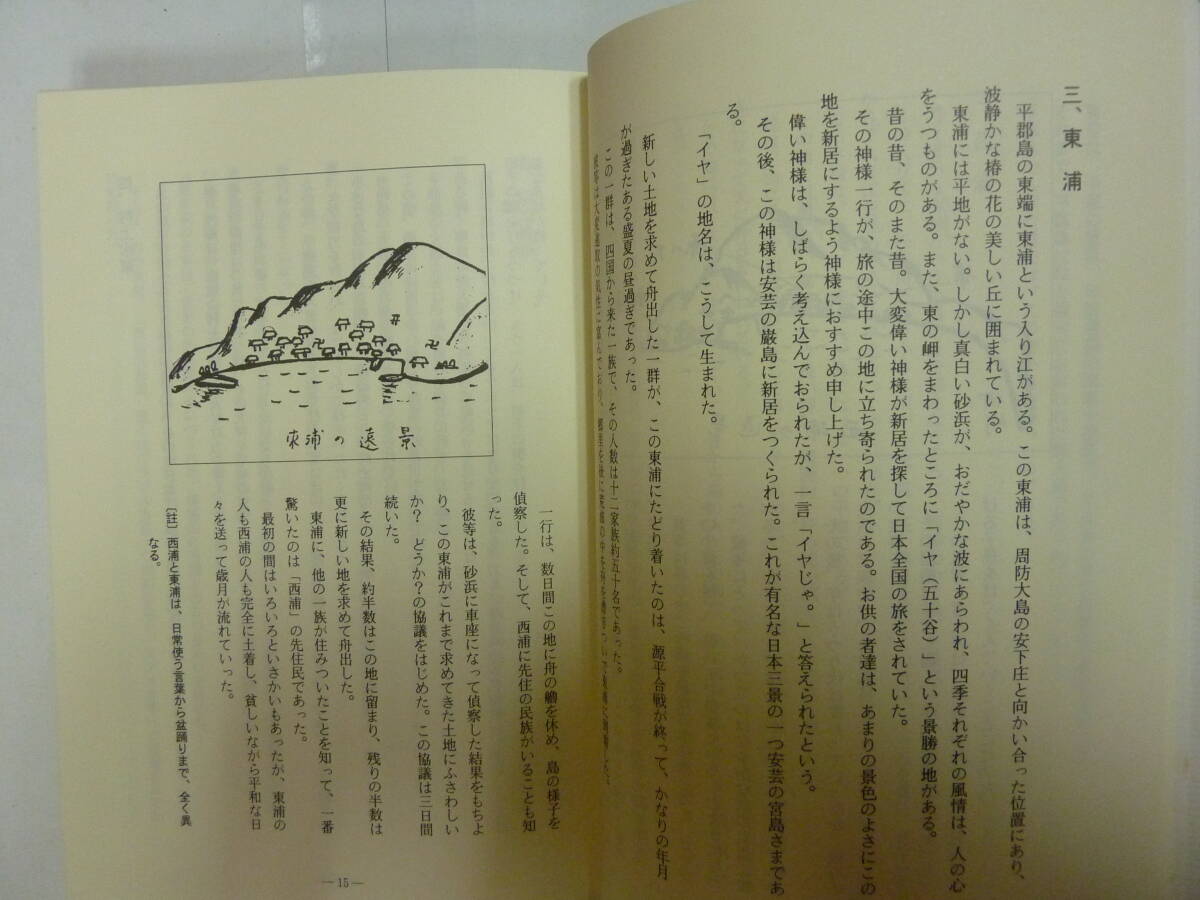 三、東浦
平郡島の東端に東浦という入り江がある。この東浦は、周防大島の安下庄と向かい合った位置にあり、
波静かな椿の花の美しい丘に囲まれている。
東浦には平地がない。しかし真白い砂浜が、おだやかな波にあらわれ、四季それぞれの風情は、人の心
をうつものがある。また、東の岬をまわったところに「イヤ（五十谷）」という景勝の地がある。
昔の昔、そのまた昔。大変偉い神様が新居を探して日本全国の旅をされていた。
その神様一行が、旅の途中この地に立ち寄られたのである。お供の者達は、あまりの景色のよさにこの
地を新居にするよう神様におすすめ申し上げた。
偉い神様は、しばらく考え込んでおられたが、一言「イヤじゃ。」と答えられたという。
その後、この神様は安芸の厳島に新居をつくられた。これが有名な日本三景の一つ安芸の宮島さまであ
る。
「イヤ」の地名は、こうして生まれた。
新しい土地を求めて舟出した一群が、この東浦にたどり着いたのは、源平合戦が終って、かなりの年月
が過ぎたある盛夏の昼過ぎであった。
この一群は、四国から来た一族で、その人数は十二家族約五十名であった。
東浦の遠景
一行は、数日間この地に舟の艪を休め、島の様子を
偵察した。そして、西浦に先住の民族がいることも知
った。
彼等は、砂浜に車座になって偵察した結果をもちよ
り、この東浦がこれまで求めてきた土地にふさわしい
か？どうか？の協議をはじめた。この協議は三日間
続いた。
その結果、約半数はこの地に留まり、残りの半数は
更に新しい地を求めて舟出した。
東浦に、他の一族が住みついたことを知って、一番
驚いたのは「西浦」の先住民であった。
最初の間はいろいろといさかいもあったが、東浦の
人も西浦の人も完全に土着し、貧しいながら平和な日
々を送って歳月が流れていった。
〔註〕西浦と東浦は、日常使う言葉から盆踊りまで、全く異
なる。
―15―